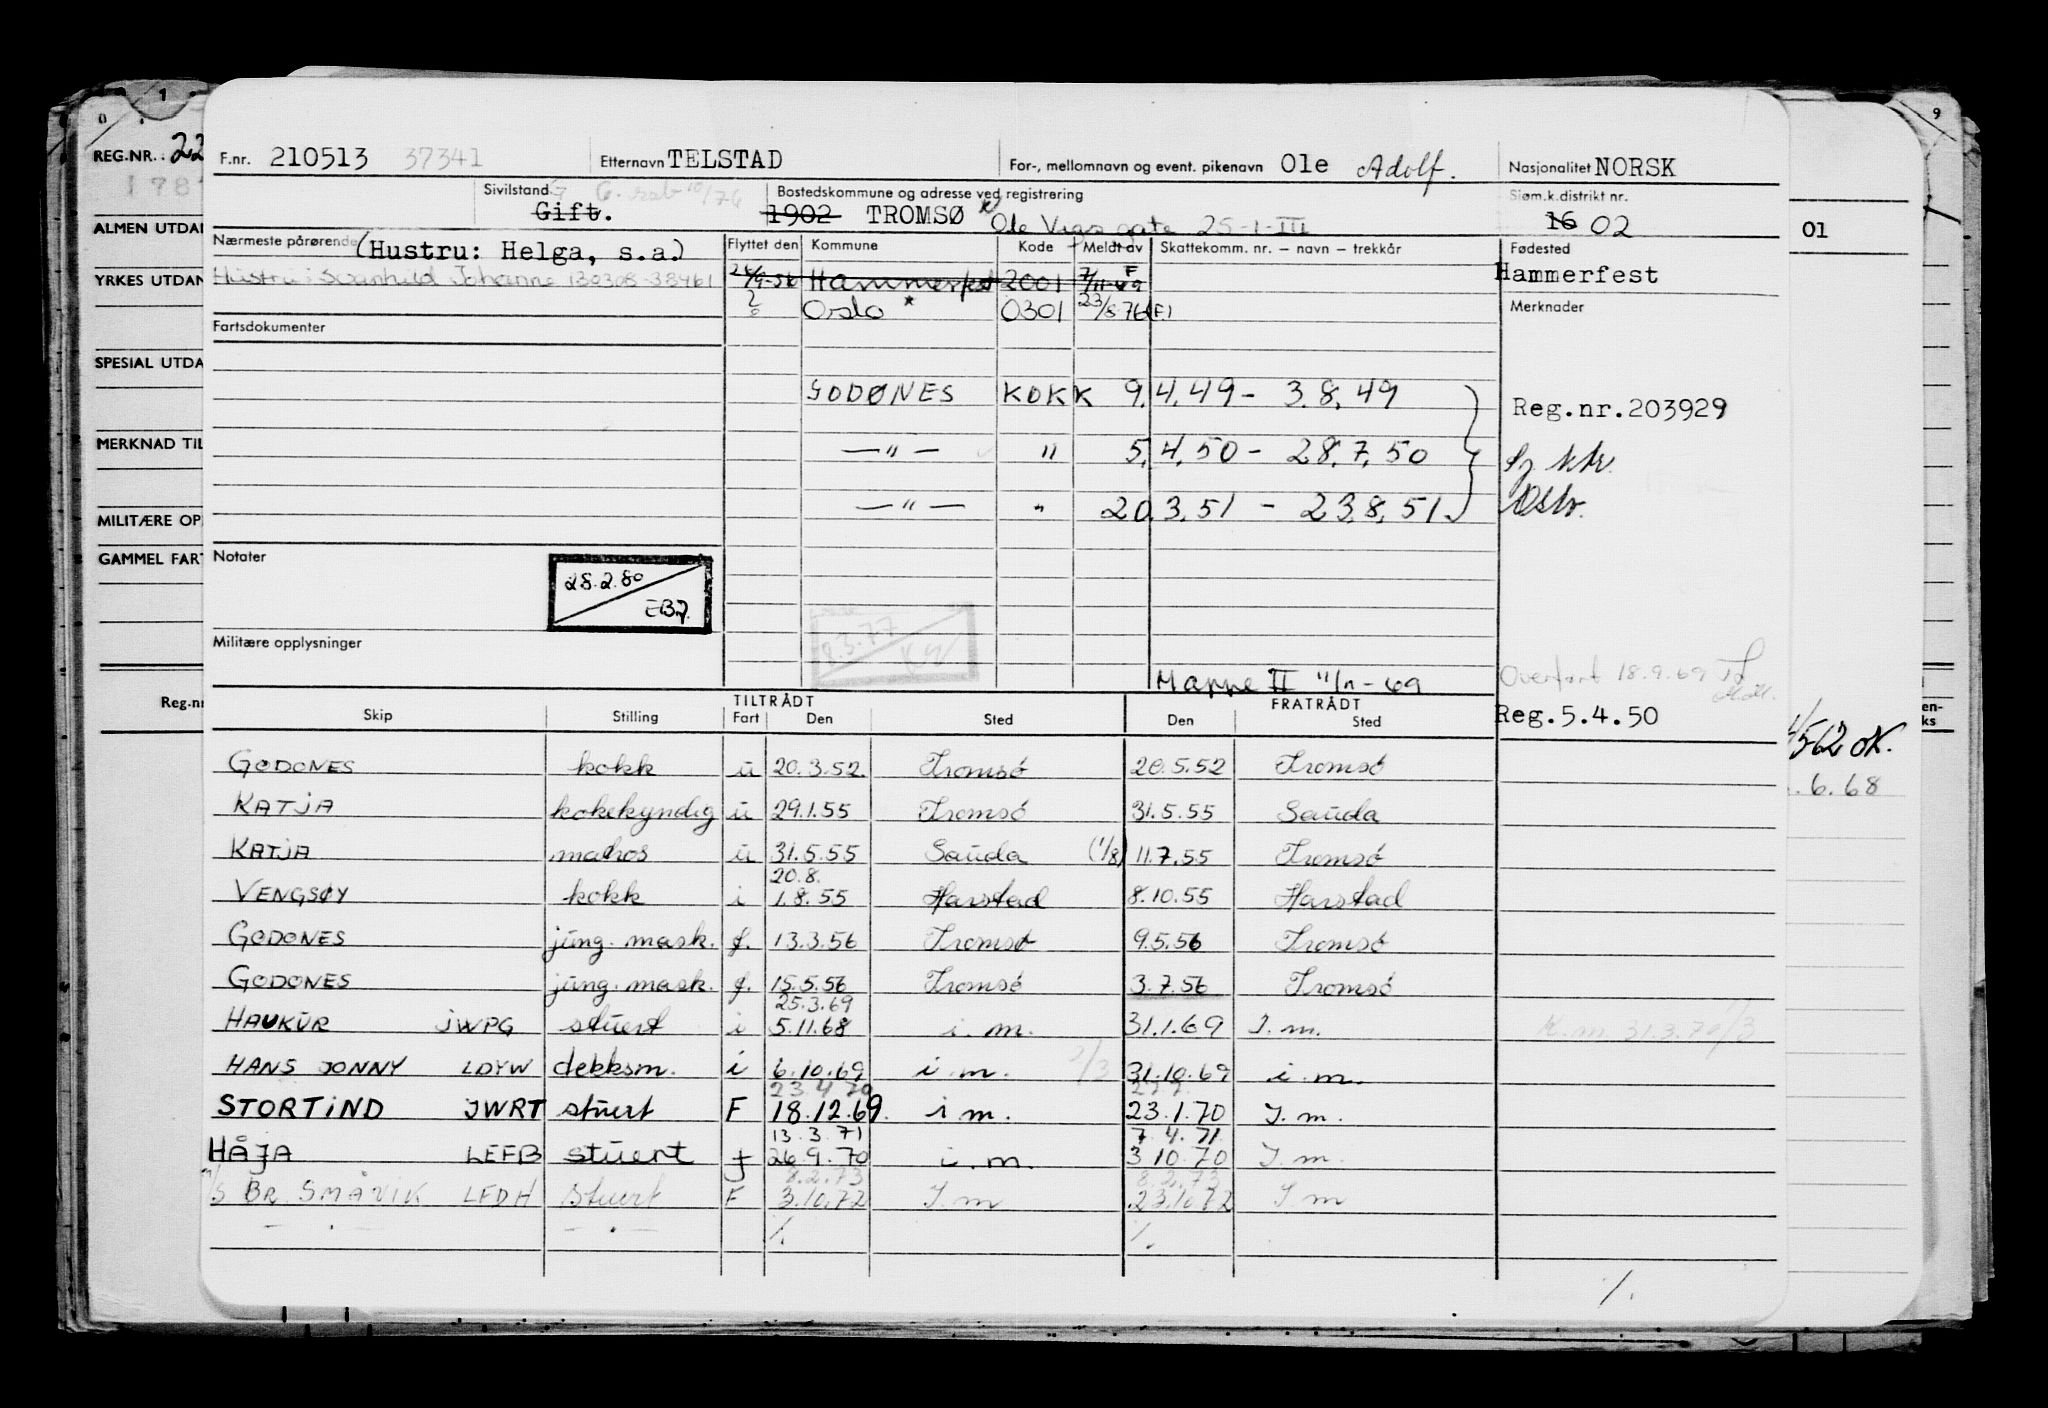 0 1 9
REG.NR.: 22
F.nr. 210513 37341 Etternavn TELSTAD For-, mellomnavn og event. pikenavn Ole Adolf. Nasjonalitet NORSK
Sivilstand G Bostedskommune og adresse ved registrering Sjøm.k.distrikt nr.
Gift. 1902 TROMSØ Ole Vigs gate 25-1-III 16 02 01
ALMEN UTDA
Nærmeste pårørende (Hustru: Helga, s.a.) Flyttet den Kommune Kode Meldt av Skattekomm. nr. – navn – trekkår Fødested
YRKES UTDAN Hustru: Svanhild Johanne 130308-38461 Hammerfest 2001 Hammerfest
Oslo * 0301 Merknader
Fartsdokumenter
SPESIAL UTDA
GODØNES KOKK 9.4.49 - 3.8.49
Reg.nr.203929
MERKNAD TIL —"— " 5.4.50 - 28.7.50
—"— " 20.3.51 - 23.8.51.
MILITÆRE OP
GAMMEL FART Notater
28.2.80
8.3.77
Militære opplysninger
Mappe II 11/11-69 Overført 18.9.69
TILTRÅDT FRATRÅDT
Reg.nr Skip Stilling Fart Den Sted Den Sted Reg.5.4.50
562 OK.
GODØNES kokk u 20.3.52. Tromsø 20.5.52 Tromsø
.6.68
KATJA kokekyndig u 29.1.55 Tromsø 31.5.55 Sauda
KATJA matros u 31.5.55 Sauda (1/8) 11.7.55 Tromsø
20.8.
VENGSØY kokk i 1.8.55 Harstad 8.10.55 Harstad
GODØNES jung. mask. f. 13.3.56 Tromsø 9.5.56 Tromsø
GODØNES jung. mask. f. 15.5.56 Tromsø 3.7.56 Tromsø
25.3.69
HAUKUR JWPG stuert i 5.11.68 i.m. 31.1.69 I.m. K.m. 31.3.70
HANS JONNY LDYW dekksm. i 6.10.69 i.m. 31.10.69 i.m.
23.4.70
STORTIND JWRT stuert F 18.12.69. i m. 23.1.70 I.m.
13.3.71 7.4.71
HÅJA LEFB stuert f 26.9.70 i.m. 3.10.70 I.m.
8.2.73 8.2.73
M/S BR. SMÅVIK LFDH Stuert F 3.10.72 I.m 23.10.72 I.m
— . — — . — ./. ./.
./.